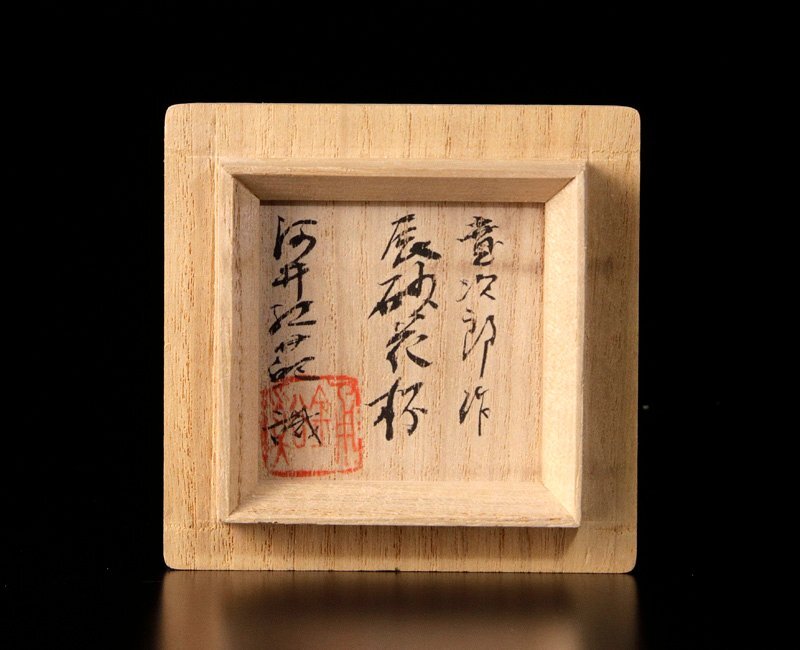 寛次郎作
辰砂花杯
河井紅葩識